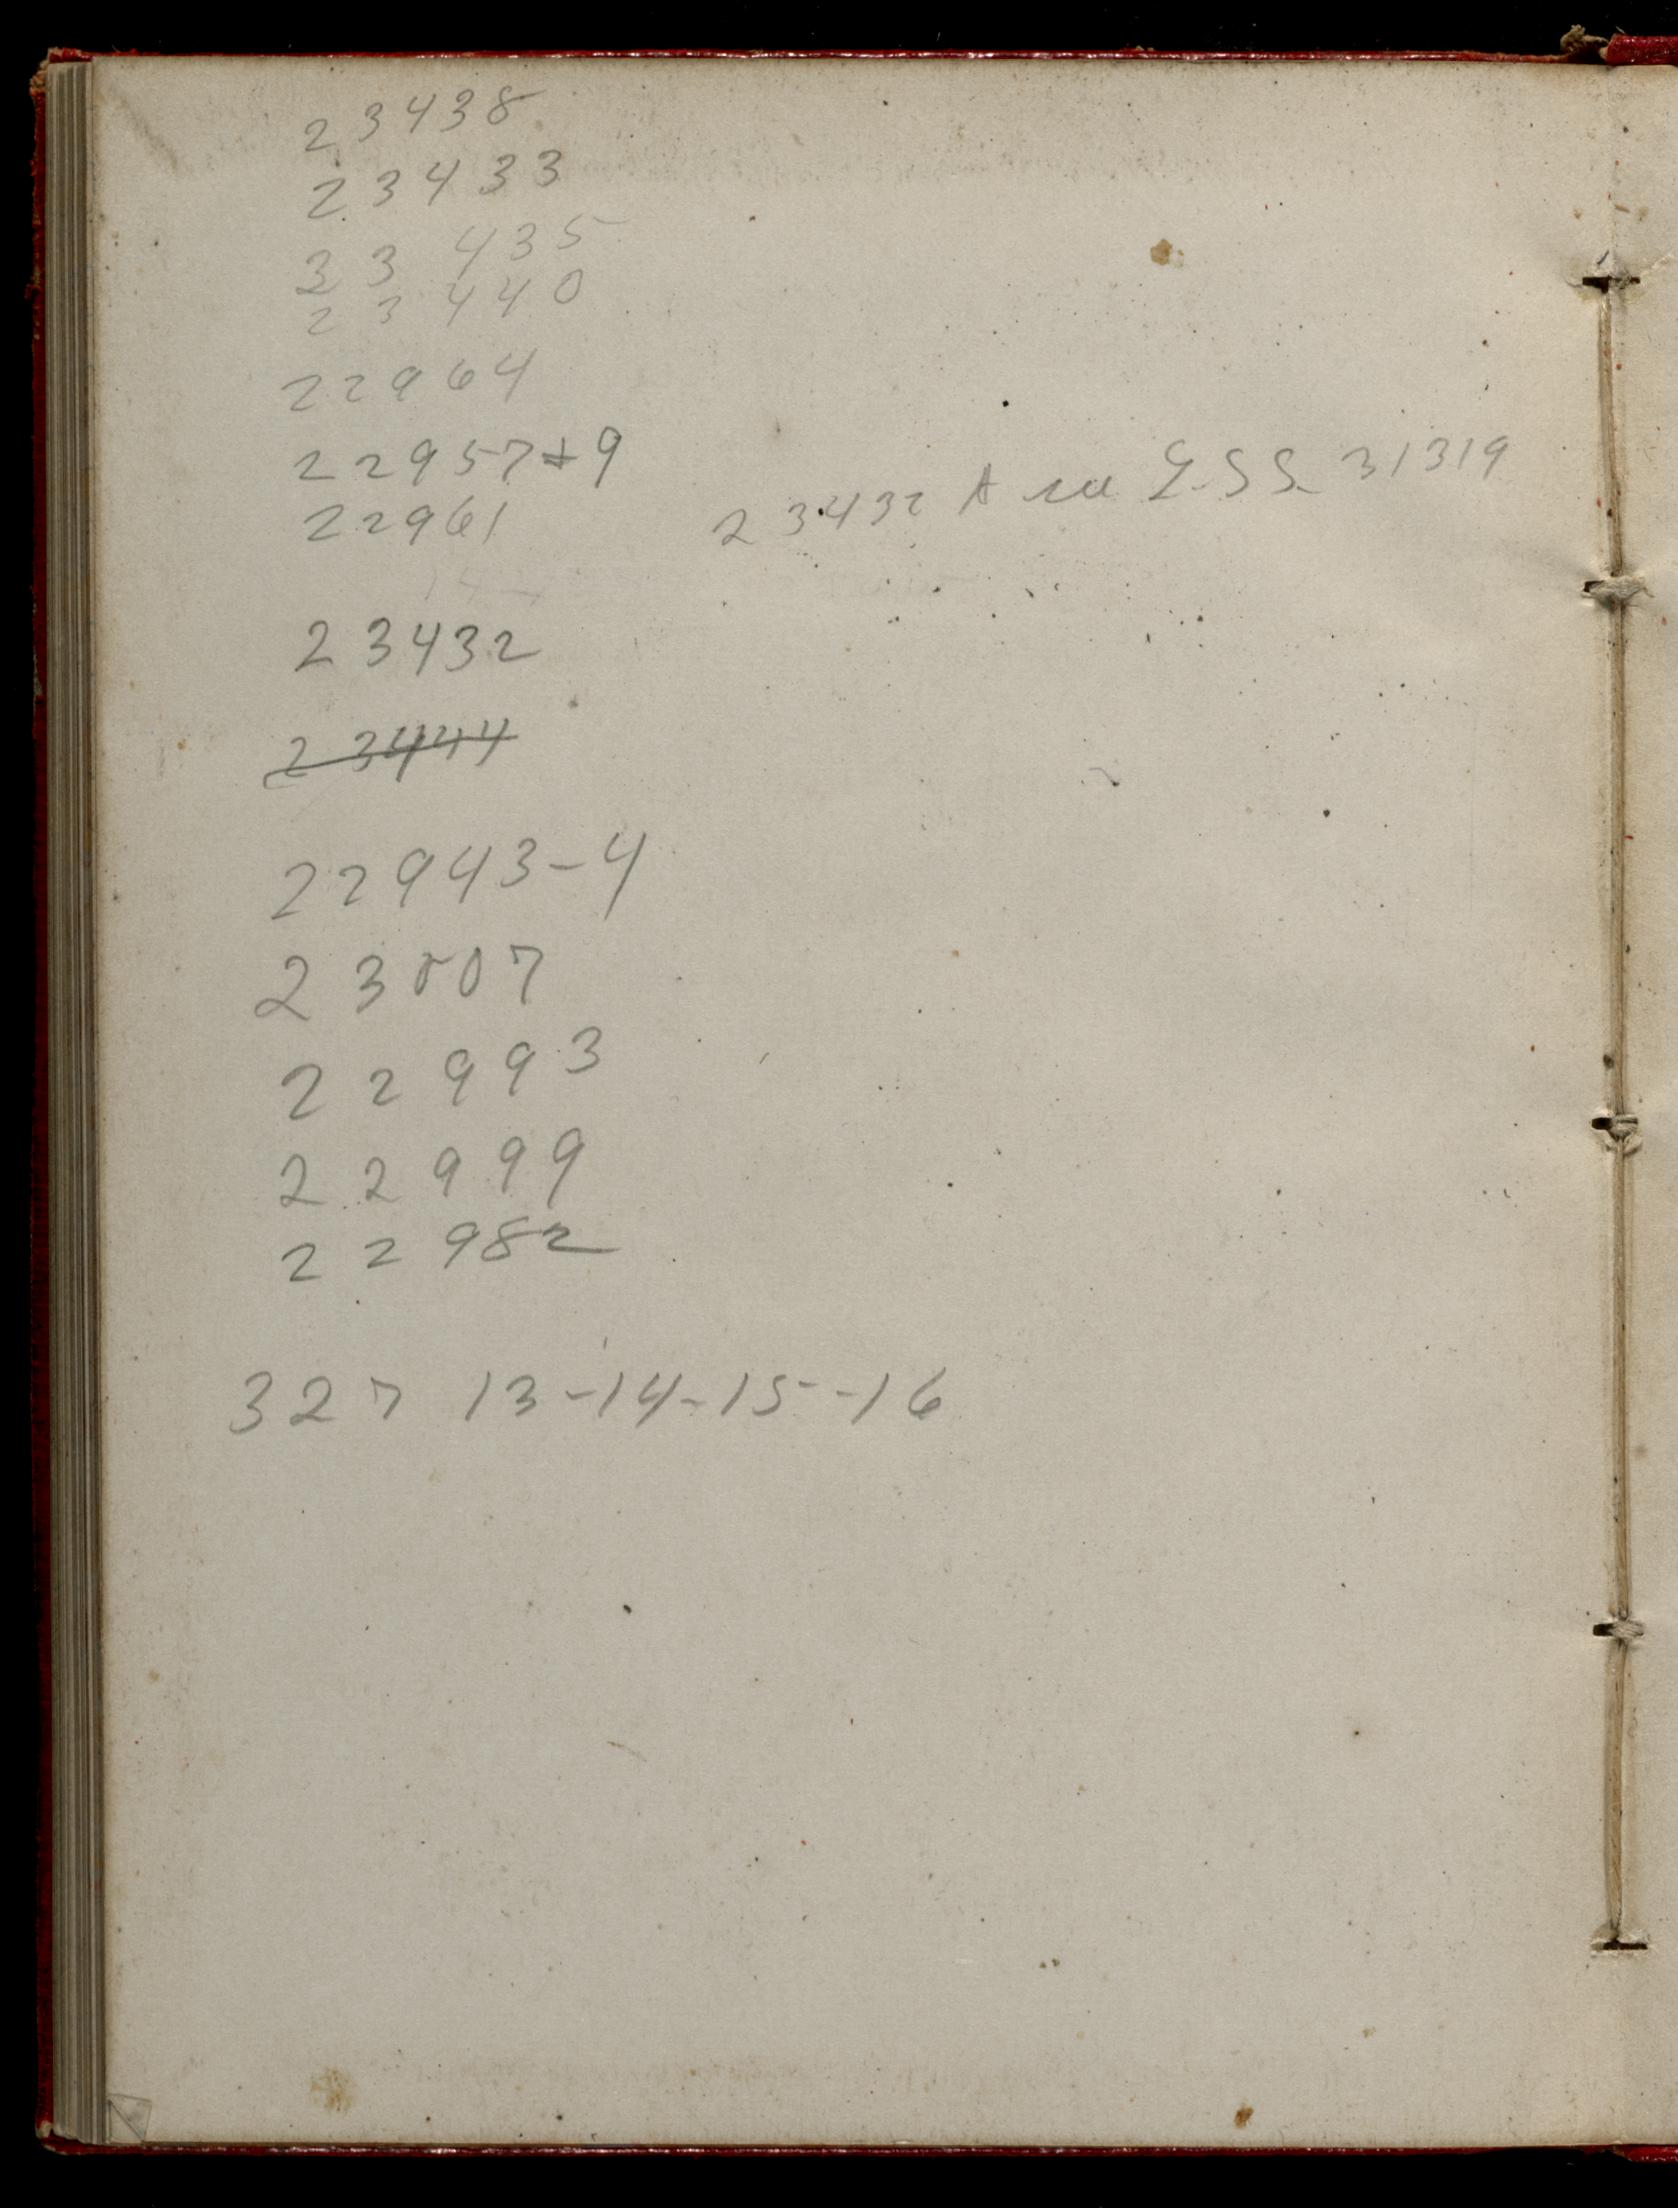 23438
23433
23 435
23440
22964
22957+9
22961
23432 A
E.S.S. 31319
23432
23444
22943-4
23007
22993
22999
22982
327 13-14-15-16